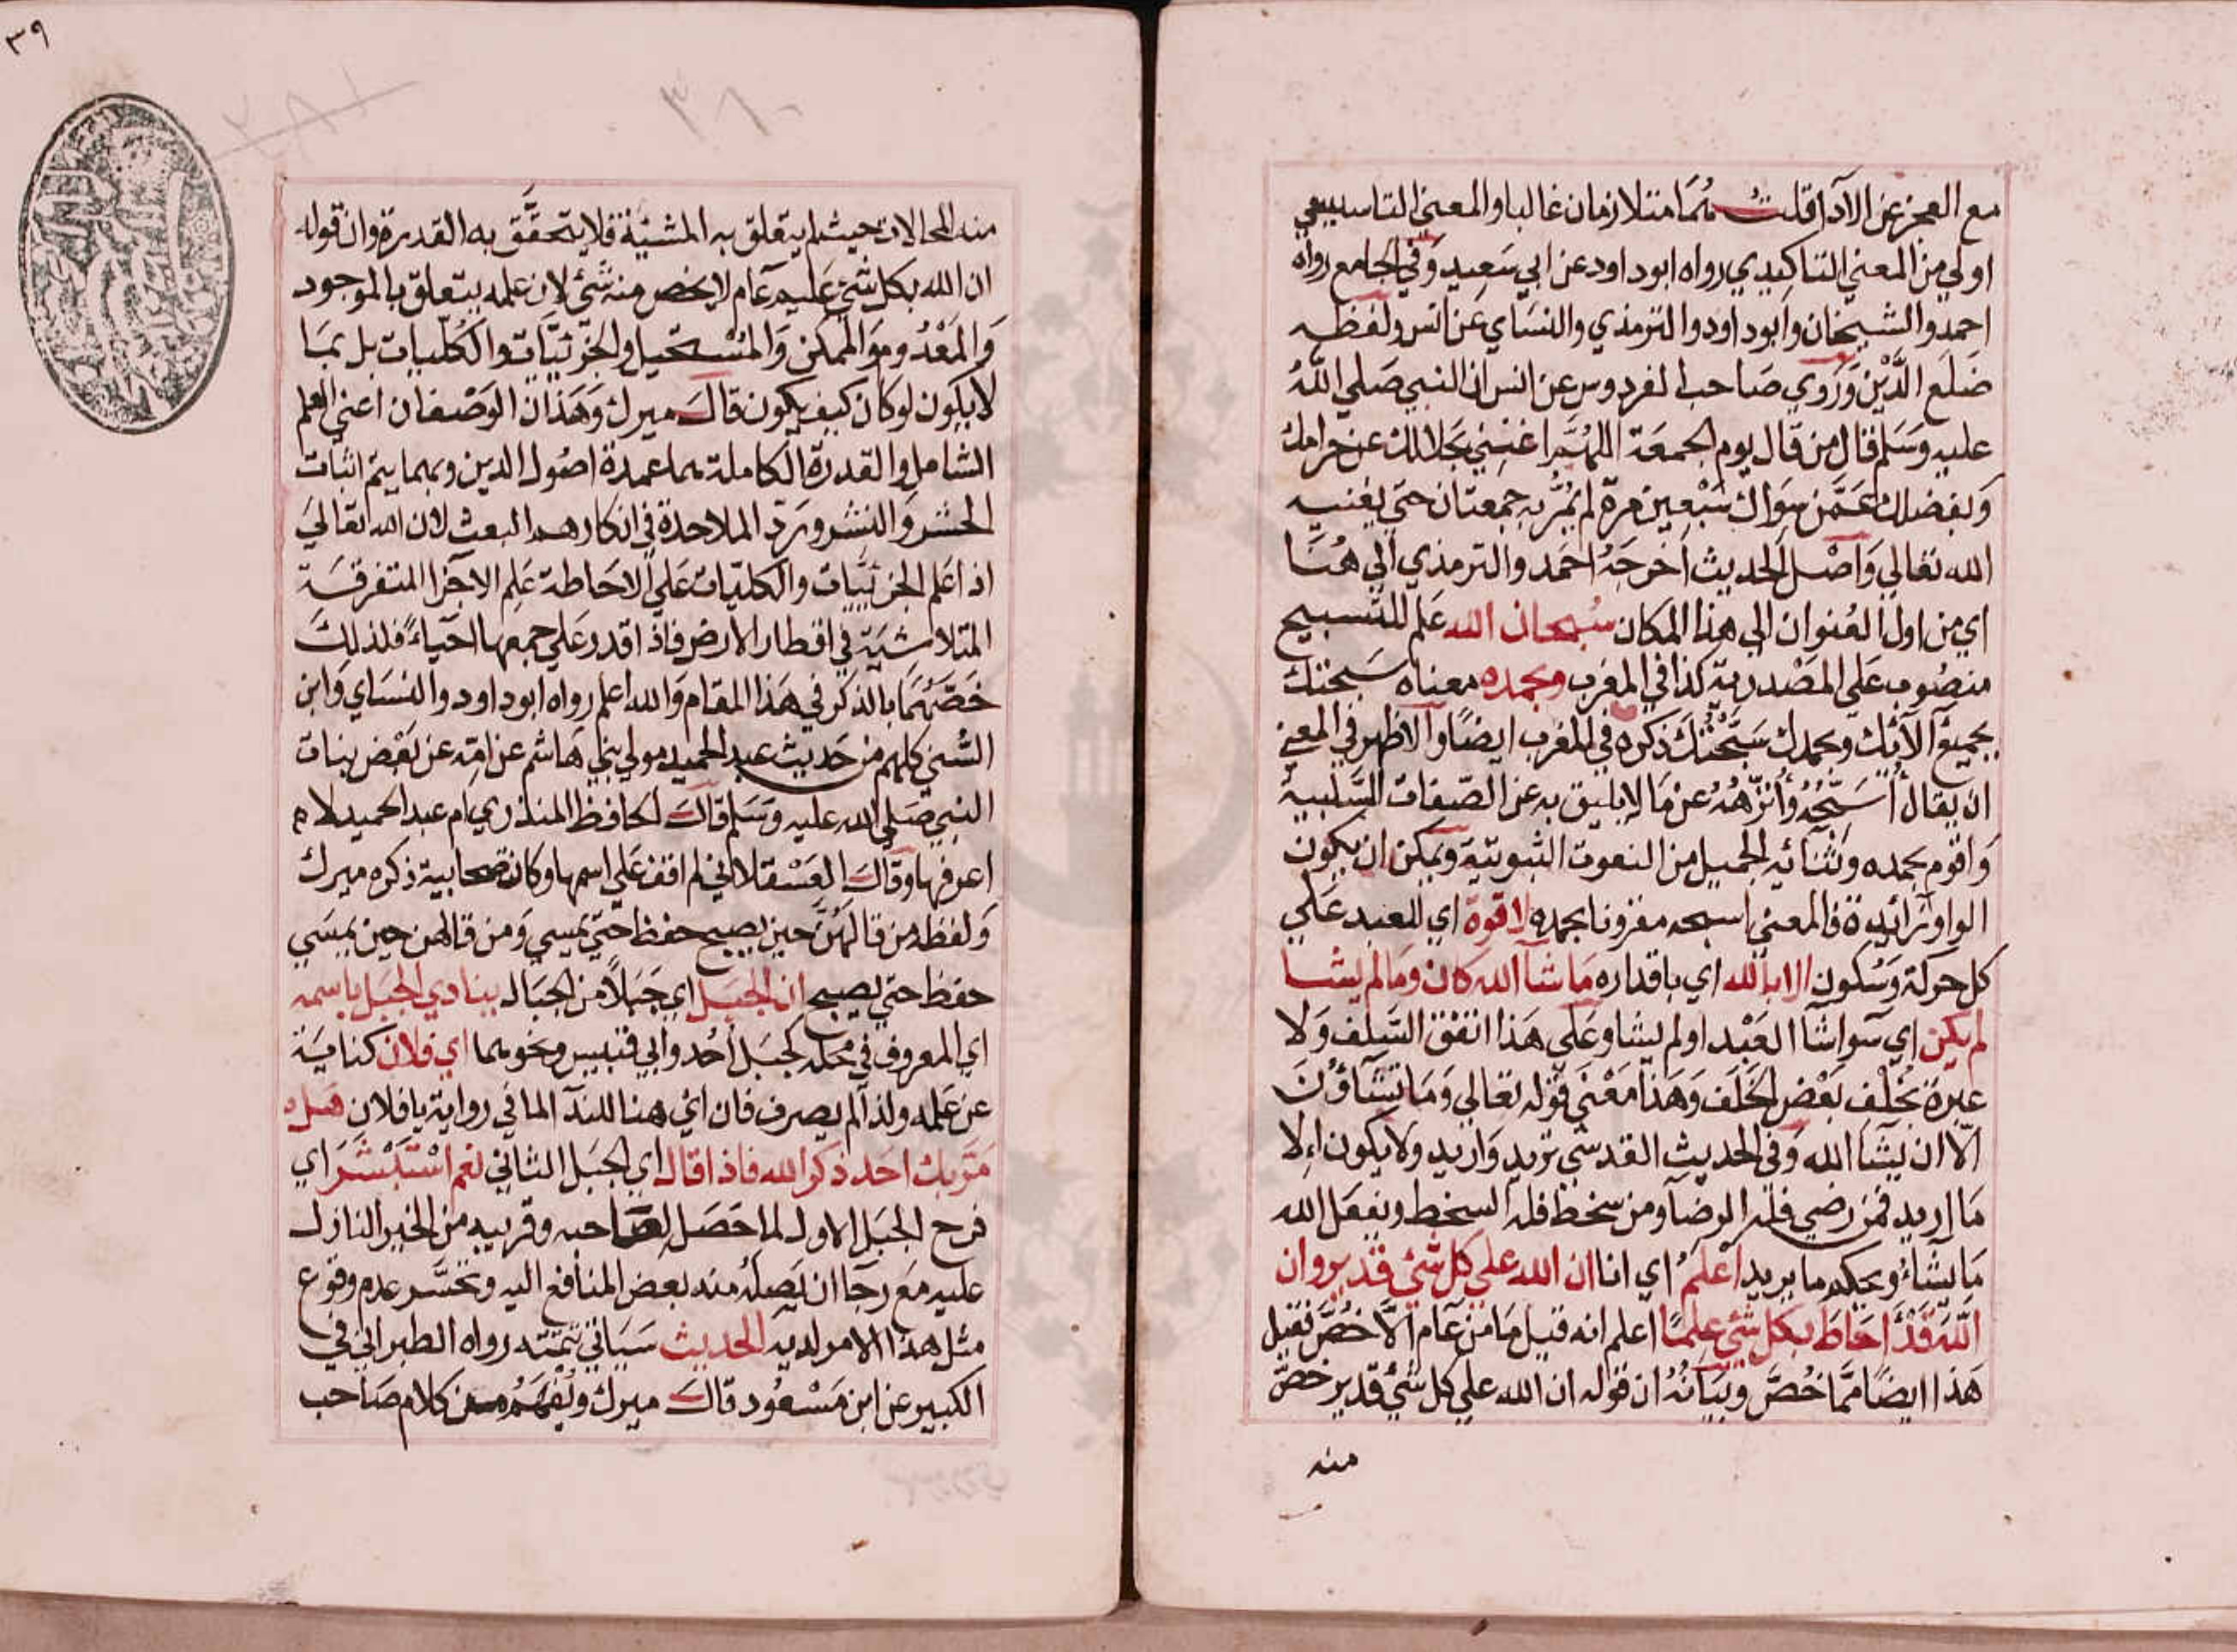 مع العجز عن الاداء قلت هما متلازمان غالبا والمعني التاسيسي
اولي من المعني التاكيدي رواه ابوداود عن ابي سعيد وفي الجامع رواه
احمد والشيخان وابوداود والترمذي والنساي عن انس ولفظه
ضلع الدَّيْن وروي صاحب الفردوس عن انس ان النبي صلي الله
عليه وسلم قال من قال يوم الجمعة اللهم اغنني بحلالك عن حرامك
وبفضلك عمن سواك سبعين مرة لم يمر به جمعتان حتي يغنيه
الله تعالي واصل الحديث اخرجه احمد والترمذي الي هنا
اي من اول العنوان الي هذا المكان سبحان الله علم للتسبيح
منصوب علي المصدرية كذا في المغرب وبحمده معناه سبحتك
بجميع آلائك وبحمدك سبحتك ذكره في المغرب ايضا والاظهر في المعني
ان يقال أسبحه وأنزهه عن ما لا يليق به عن الصفات السلبية
واقوم بحمده وثنائه الجميل من النعوت الثبوتية ويمكن ان يكون
الواو زائدة فالمعني اسبحه مقرونا بحمده لا قوة اي للعبد علي
كل حركة وسكون الا بالله اي باقداره ما شآ الله كان وما لم يشا
لم يكن اي سواشآ العبد او لم يشا وعلي هذا اتفق السلف ولا
عبرة بخلف بعض الخلف وهذا معني قوله تعالي وما تشآؤن
الّا ان يشآ الله وفي الحديث القدسي تريد واريد ولا يكون الا
ما اريد فمن رضي فله الرضآ ومن سخط فله السخط ويفعل الله
ما يشآء ويحكم ما يريد اعلم اي انا ان الله علي كل شئ قدير وان
الله قد احاط بكل شئ علما اعلم انه قيل ما من عام الّا خص فقيل
هذا ايضا مما خص وبيانه ان قوله ان الله علي كل شئ قدير خص
منه
٣٩
منه المحالات حيث لم يتعلق به المشيئة فلا يتحقق به القدرة وان قوله
ان الله بكل شئ عليم عام لا يخص منه شئ لان علمه يتعلق بالموجود
والمعدوم والممكن والمستحيل والجزئيات والكليات بل بما
لا يكون لو كان كيف يكون قال ميرك وهذان الوصفان اعني العلم
الشامل والقدرة الكاملة هما عمدة اصول الدين وبهما يتم اثبات
الحشر والنشر ورد الملاحدة في انكارهم البعث لان الله تعالي
اذا علم الجزئيات والكليات علي الاحاطة علم الاجزا المتفرقة
المتلاشية في اقطار الارض فاذا قدر علي جمعها احياء فلذلك
خصهما بالذكر في هذا المقام والله اعلم رواه ابوداود والنساي وابن
السني كلهم من حديث عبد الحميد مولي بني هاشم عن امه عن بعض بنات
النبي صلي الله عليه وسلم قال الحافظ المنذري ام عبد الحميد لا
اعرفها وقال العسقلاني لم اقف علي اسمها وكان صحابية ذكره ميرك
ولفظه من قالهن حين يصبح حفظ حتي يمسي ومن قالهن حين يمسي
حفظ حتي يصبح ان الجبل اي جبلا من الجبال ينادي الجبل باسمه
اي المعروف في محله كجبل أحد وابي قبيس ونحوهما اي فلان كناية
عن علمه ولذا لم يصرف فان اي هنا للندآ لما في رواية يا فلان هل
مر بك احد ذكر الله فاذا قال اي الجبل الثاني نعم استبشر اي
فرح الجبل الاول لما حصل لصاحبه وقريبه من الخير النازل
عليه مع رجا ان يصله منه بعض المنافع اليه وتحسر عدم وقوع
مثل هذا الامر لديه الحديث سياتي تتمته رواه الطبراني في
الكبير عن ابن مسعود قال ميرك ويفهم من كلام صاحب